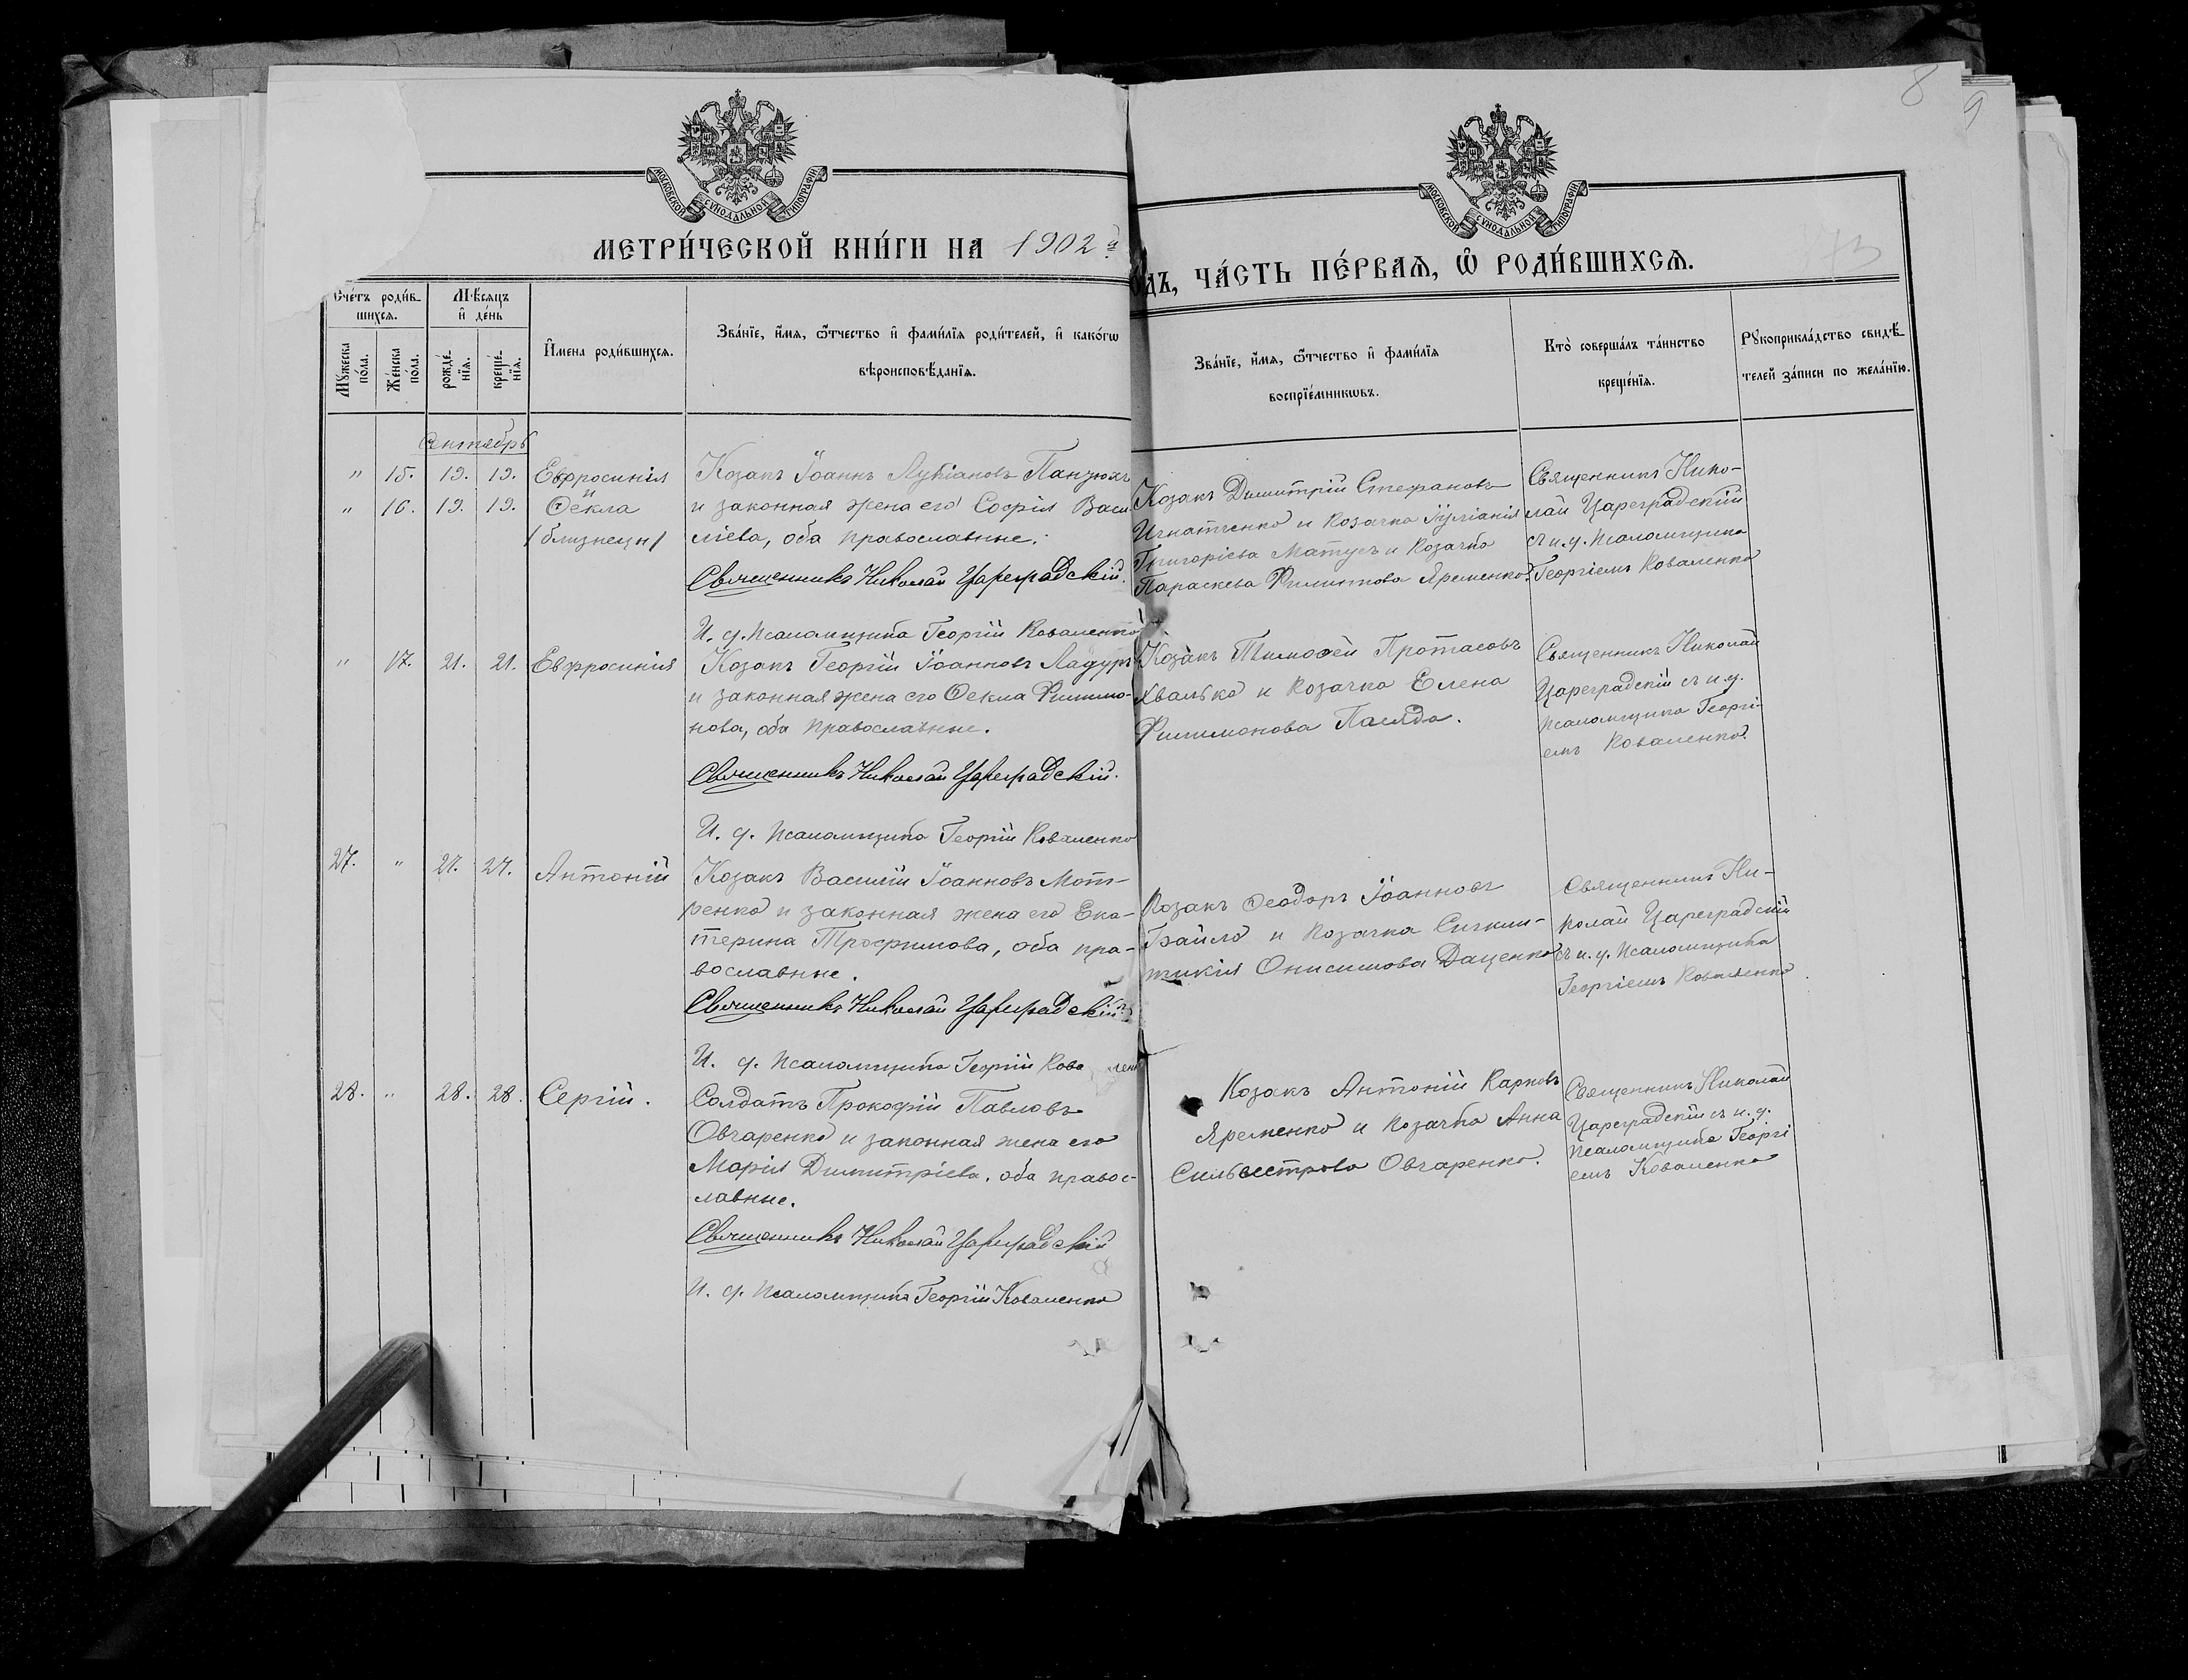 8
9
МОСКОВСКОЙ СѴНОДАЛЬНОЙ ТИПОГРАФІИ
МОСКОВСКОЙ СѴНОДАЛЬНОЙ ТИПОГРАФІИ
МЕТРИ́ЧЕСКОЙ КНИ́ГИ НА 1902 й
О́ДЪ, ЧА́СТЬ ПЕ́РВАѦ, Ѡ РОДИ́ВШИХСѦ.
Сче́тъ роди́в-
шихсѧ.
Мꙋ́жеска по́ла.
Же́нска по́ла.
Мѣ́сѧцъ
и҆ де́нь
рожде́-
нїѧ.
креще́-
нїѧ.
И҆мена роди́вшихсѧ.
Зва́нїе, и҆́мѧ, ѻ҆́тчество и҆ фами́лїѧ роди́телей, и҆ како́гѡ
вѣроисповѣ́данїѧ.
Зва́нїе, и҆́мѧ, ѻ҆́тчество и҆ фами́лїѧ
воспрїе́мникѡвъ.
Кто̀ соверша́лъ та́инство
креще́нїѧ.
Рꙋкоприкла́дство свидѣ́-
телей за́писи по жела́нїю.
Сентябрь
" 15. 19. 19. Евфросинія
и
" 16. 19. 19. Ѳекла
/близнецы/
Козакъ Іоаннъ Лукіановъ Панзюхъ
и законная жена его Софія Васи-
ліева, оба православные.
Священникъ Николай Цареградскій.
И. д. псаломщика Георгій Коваленко
Козакъ Димитрій Стефановъ
Игнатченко и козачка Іуліанія
Григоріева Матусъ и козачка
Параскева Яременко.
Священникъ Нико-
лай Цареградскій
съ и. д. псаломщика
Георгіемъ Коваленко
" 17. 21. 21. Евфросинія
Козакъ Георгій Іоанновъ Ладуръ
и законная жена его Ѳекла Филимо-
нова, оба православные.
Священникъ Николай Цареградскій.
И. д. псаломщика Георгій Коваленко
Козакъ Тимоѳей Протасовъ
Хвалько и козачка Елена
Филимонова Паляда.
Священникъ Николай
Цареградскій съ и. д.
псаломщика Георгі-
емъ Коваленко.
27. " 27. 27. Антоній
Козакъ Василій Іоанновъ Мот-
ренко и законная жена его Ека-
терина Трофимова, оба пра-
вославные.
Священникъ Николай Цареградскій
И. д. псаломщика Георгій Кова лен
Козакъ Ѳеодоръ Іоанновъ
и козачка Синкли-
тикія Онисимова Даценко
Священникъ Ни-
колай Цареградскій
съ и. д. псаломщика
Георгіемъ Коваленко
28. " 28. 28. Сергій.
Солдатъ Прокофій Павловъ
Овчаренко и законная жена его
Марія Димитріева, оба правос-
лавные.
Священникъ Николай Цареградскій
И. д. псаломщика Георгій Коваленко
Козакъ Антоній Карповъ
Яременко и козачка Анна
Сильвестрова Овчаренко.
Священникъ Николай
Цареградскій съ и. д.
псаломщика Георгі
емъ Коваленко